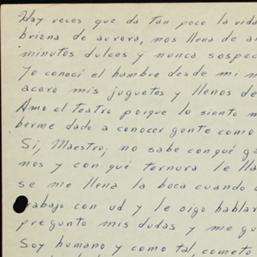 Hay veces que da tan poco la vida
brizna de aurora, nos llena de a
minutos dulces y nunca sospec
Yo conocí el hambre desde mi n
acero mis juguetes y llenos de
Amo el teatro porque lo siento m
berme dado a conocer gente como
Si, Maestro; no sabe con qué g
nos y con qué ternura le lla
se me llena la boca cuando d
trabajo con ud y le oigo hablar
pregunto mis dudas y me gu
Soy humano y como tal, cometo